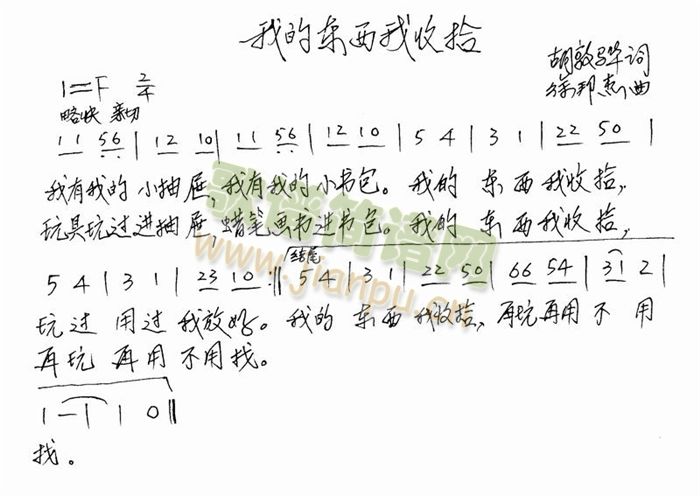 我的东西我收拾
胡敦骅词
徐邦杰曲
1=F 2/4
略快 亲切
11 56 | 12 10 | 11 56 | 12 10 | 5 4 | 3 1 | 22 50 |
我有我的 小抽屉,我有我的小书包。我的 东西我收拾,
玩具玩过进抽屉,蜡笔画书进书包。我的 东西我收拾,
结尾
5 4 | 3 1 | 23 10 :‖ 5 4 | 3 1 | 22 50 | 66 54 | 31 2 |
玩过 用过 我放好。我的 东西我收拾,再玩再用 不 用
再玩 再用 不用找。
1 - | 1 0 ‖
找。
歌谱简谱网
www.jianpu.cn